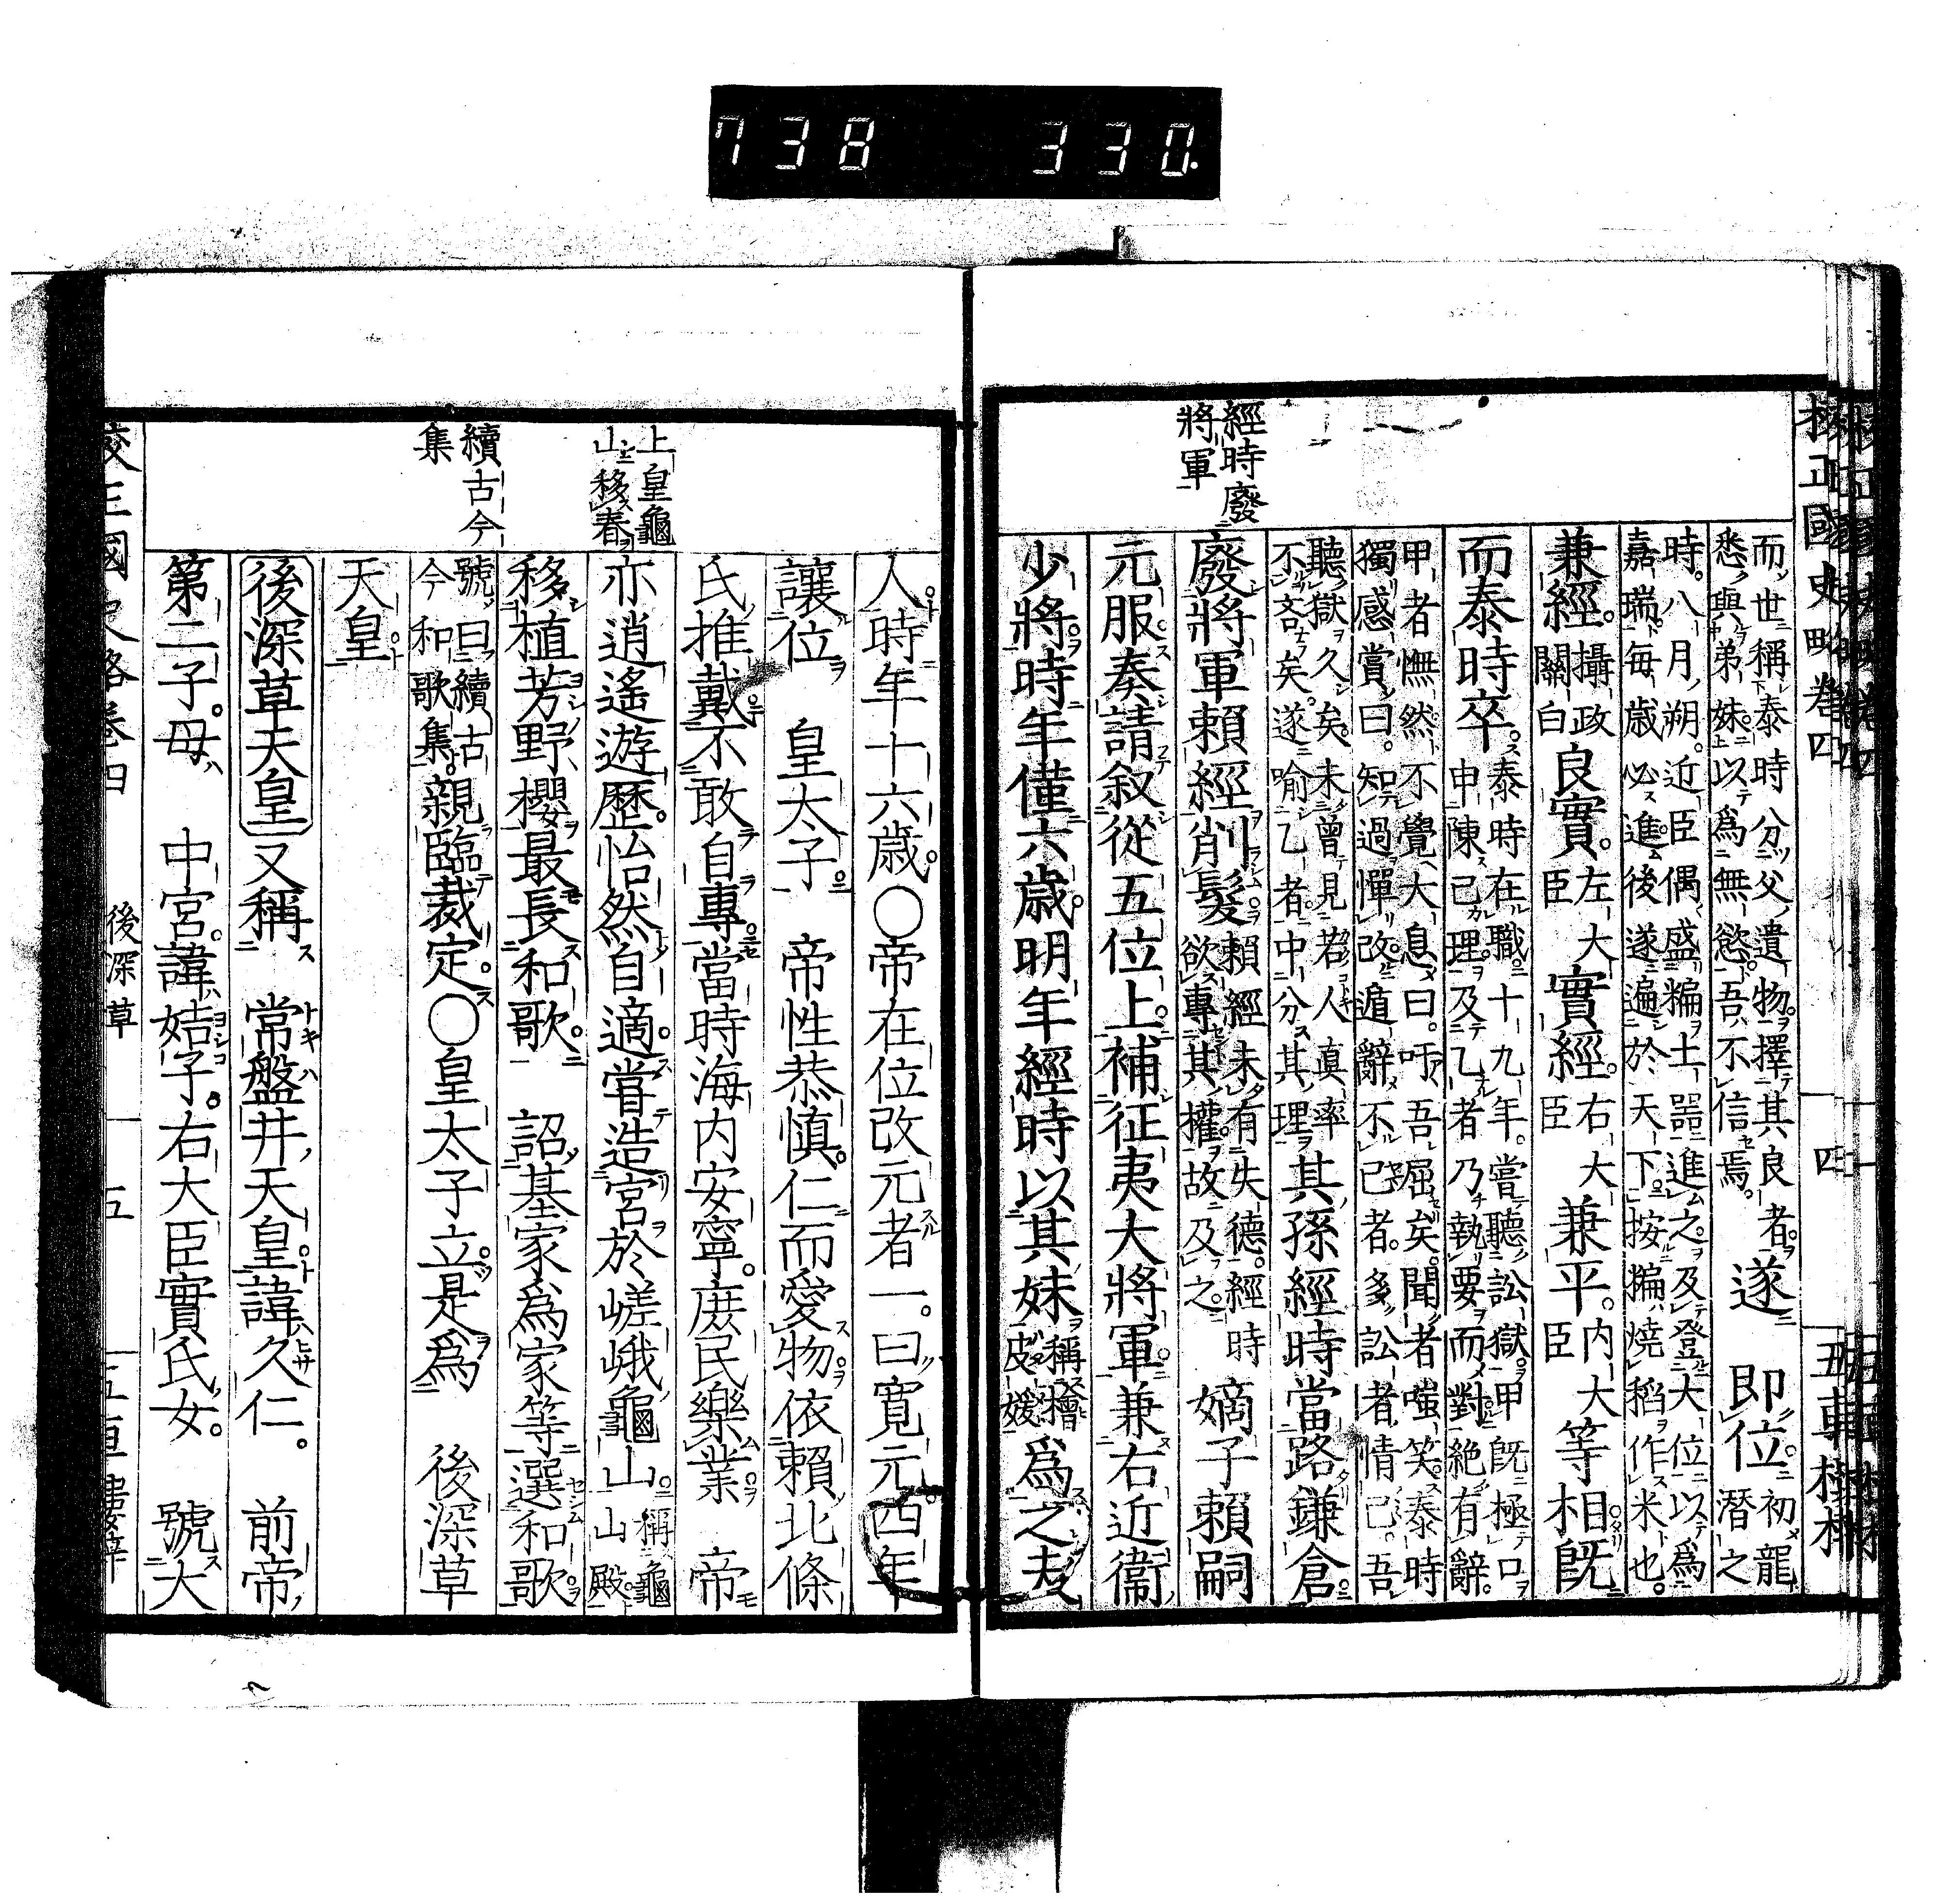 738 330.
校正國史略卷四 四 五車樓梓
而世稱泰時分父遺物擇其良者
悉與弟妹以爲無慾吾不信焉。
遂 即位
初龍潛之
時。八月朔。近臣偶盛糄土器進之及登大位以爲
嘉瑞。毎歳必進後遂遍於天下按糄燒稻作米也。
兼經。攝政關白良實。左大臣實經。右大臣兼平。内大臣等相既
而泰時卒。
泰時在職十九年。嘗聽訟獄甲既極口
申陳己理及乙者乃執要而對絶有辭。
甲者憮然不覺大息曰。吁吾屈矣。聞者嗤笑泰時
獨感賞曰。知過憚改遁辭不已者。多訟者情已。吾
聽獄久矣。未曾見若人真率
不吝矣。遂喻乙者。中分其理
其孫經時當路鎌倉
經時廢將軍
廢將軍賴經削髮
賴經未有失德。經時
欲專其權故及之。
嫡子賴嗣
元服奏請叙從五位上。補征夷大將軍兼右近衞
少將時年僅六歳。明年經時以其妹稱檜皮媛爲之妻
人時年十六歳。〇帝在位改元者一。曰寛元四年
讓位 皇太子 帝性恭慎。仁而愛物依賴北條
氏推戴不敢自專當時海内安寧。庶民樂業 帝
上皇龜山移春
亦逍遙遊歷。怡然自適。嘗造宮於嵯峨龜山稱龜山殿
移植芳野櫻最長和歌。 詔基家爲家等選和歌
續古今集
號曰續古今和歌集。親臨裁定。〇皇太子立是爲 後深草
天皇
後深草天皇又稱 常盤井天皇諱久仁。 前帝
第二子。母 中宮。諱姞子。右大臣實氏女。 號大
後深草 五